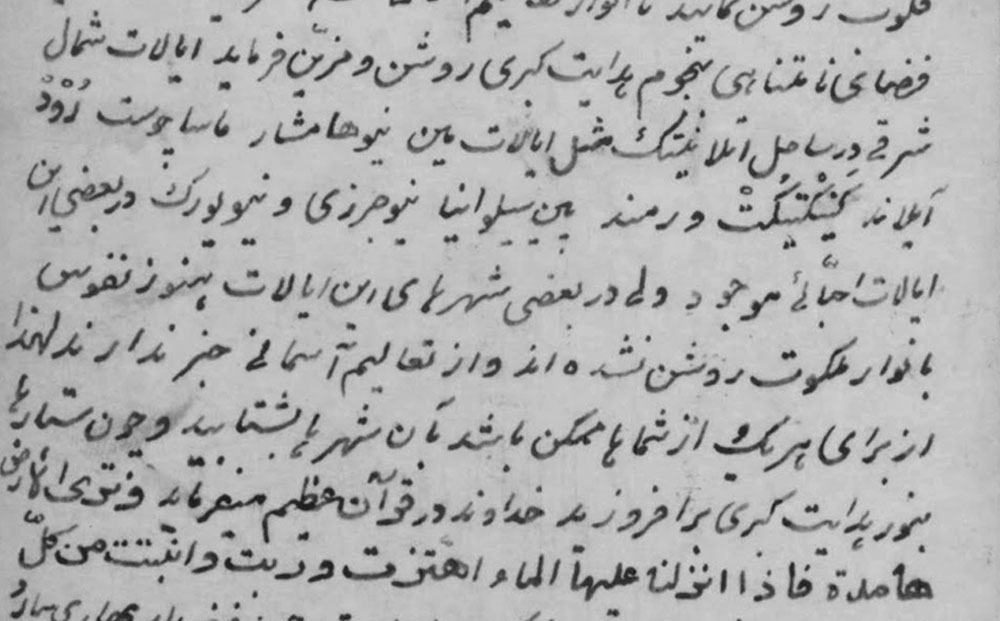 قلوب روشن نمائید تا انوار تعالیم
فضای نامتناهی بنجوم هدایت کبری روشن و مزیّن فرماید ایالات شمال
شرقی در ساحل اتلانتیک مثل ایالات مین نیوهامشار ماساچوست رُوْدْ
آیلاند کِنِکْتیکُتْ ورمند پین‌سیلوانیا نیوجرزی و نیویورک در بعضی این
ایالات احبّائی موجود ولی در بعضی شهرهای این ایالات هنوز نفوس
بانوار ملکوت روشن نشده‌اند و از تعالیم آسمانی خبر ندارند لهذا
از برای هر یک از شماها ممکن باشد بآن شهرها بشتابید و چون ستارها
بنور هدایت کبری برافروزید خداوند در قرآن عظیم میفرماید و تری الارض
هامدة فاذا انزلنا علیها الماء اهتزت و ربت و انبتت من کلّ